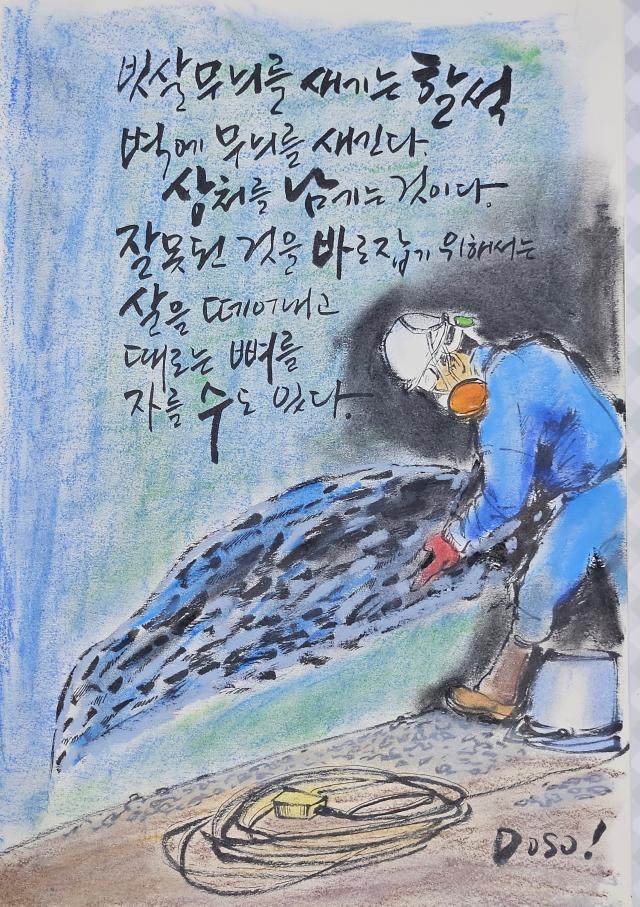 빗살무늬를 새기는 할석
벽에 무늬를 새긴다.
상처를 남기는 것이다.
잘못된 것을 바로잡기 위해서는
살을 떼어내고
때로는 뼈를
자를 수도 있다.
Doso!